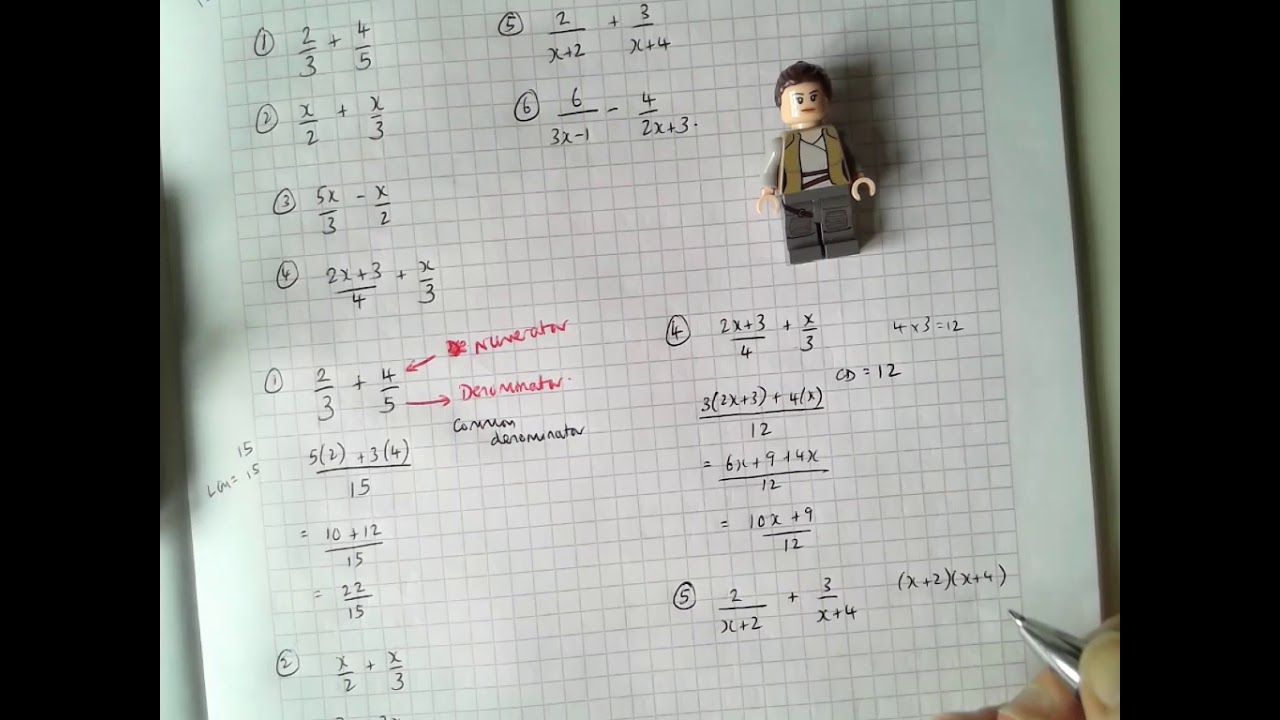 ① 2/3 + 4/5
② x/2 + x/3
③ 5x/3 - x/2
④ 2x+3/4 + x/3
⑤ 2/x+2 + 3/x+4
⑥ 6/3x-1 - 4/2x+3.
① 2/3 + 4/5
Numerator
Denominator.
Common
denominator
15
LCM = 15
5(2) + 3(4)/15
= 10 + 12/15
= 22/15
② x/2 + x/3
④ 2x+3/4 + x/3
4 x 3 = 12
CD = 12
3(2x+3) + 4(x)/12
= 6x + 9 + 4x/12
= 10x + 9/12
⑤ 2/x+2 + 3/x+4
(x+2)(x+4)